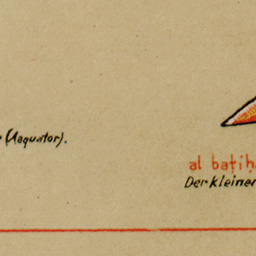 (Aequator).
al baṭiḥa
Der kleiner